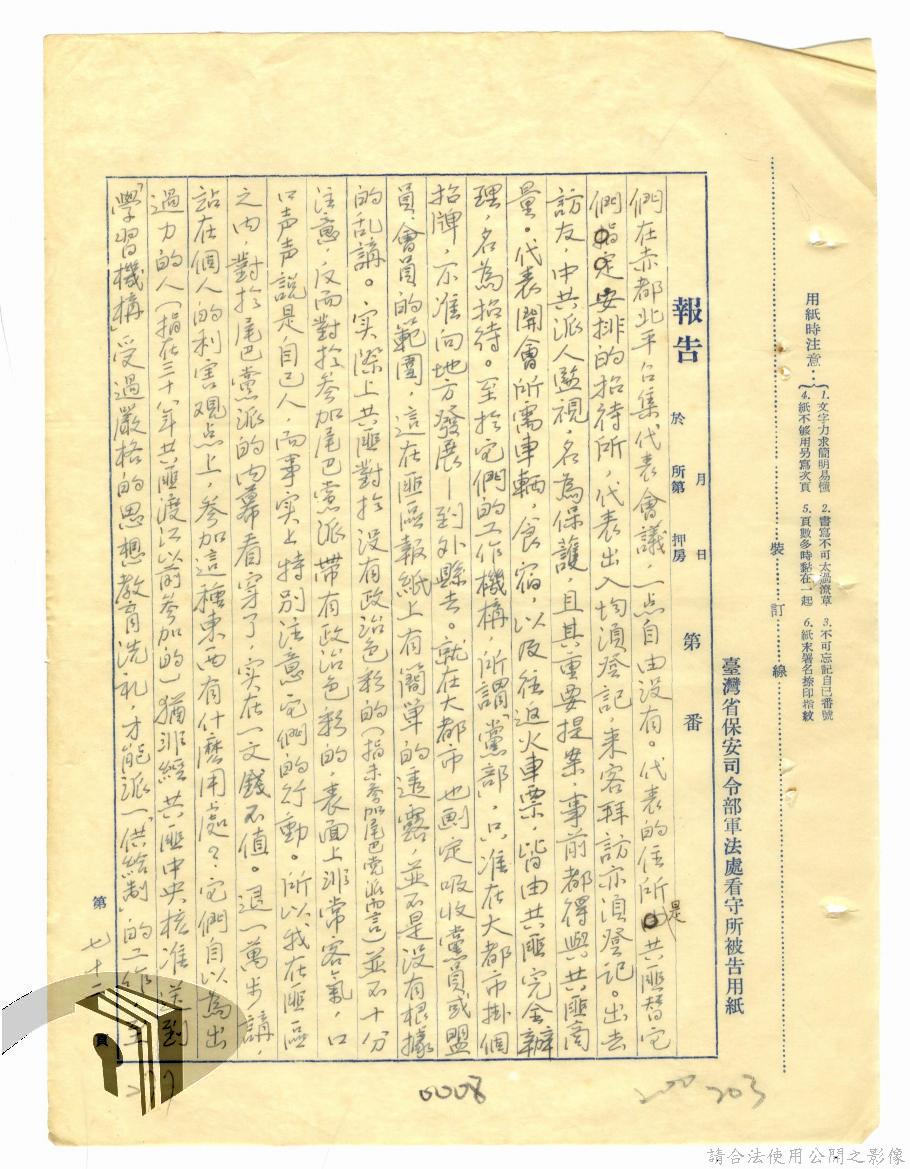 用紙時注意：
1.文字力求簡明易懂　2.書寫不可太過潦草　3.不可忘記自己番號
4.紙不够用另寫次頁　5.頁數多時黏在一起　6.紙末署名捺印指紋
裝訂線
臺灣省保安司令部軍法處看守所被告用紙
報告　於　月　日　所第　押房　第　番
們在赤都北平召集代表會議，一点自由没有。代表的住所是共匪替它
們定安排的招待所，代表出入均須登記，来客拜訪亦須登記。出去
訪友，中共派人監視，名為保護，且其重要提案，事前都得與共匪商
量。代表開會所需車輛，食宿，以及往返火車票，皆由共匪完全辦
理，名為招待。至於它們的工作機構，所謂「黨部」，只准在大都市掛個
招牌，不准向地方發展－到外縣去。就在大都市也劃定吸收黨員或盟
員、會員的範圍，這在匪區報紙上有簡单的透露，並不是没有根據
的乱講。实際上共匪對於没有政治色彩的（指未参加尾巴党派而言）並不十分
注意，反而對於参加尾巴黨派带有政治色彩的，表面上非常客氣，口
口声声説是自己人，而事实上特别注意它們的行動。所以我在匪區
之内，對於尾巴黨派的内幕看穿了，实在一文錢不值。退一萬步講，
站在個人的利害观点上，参加這種東西有什麽用處？它們自以為出
過力的人（指在三十八年共匪渡江以前参加的）猶非經共匪中央核准送到
「學習機構」受過嚴格的思想教育洗礼，才能派一「供給制」的工作，至
第七十二頁
0008
200　203
請合法使用公開之影像